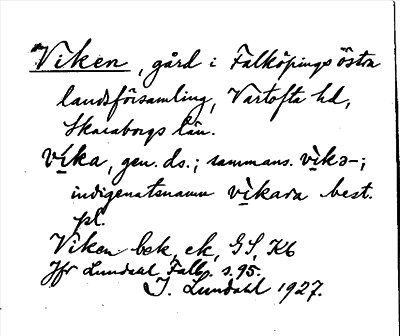 Viken, gård i Falköpings östra
landsförsamling, Vartofta hd,
Skaraborgs län.
vìka, gen. ds.; sammans. vìkə-;
indigenatsnamn vìkara best.
pl.
Viken bek, ek, GS, Kb
Jfr Lundahl Falbp. s. 95.
I. Lundahl 1927.